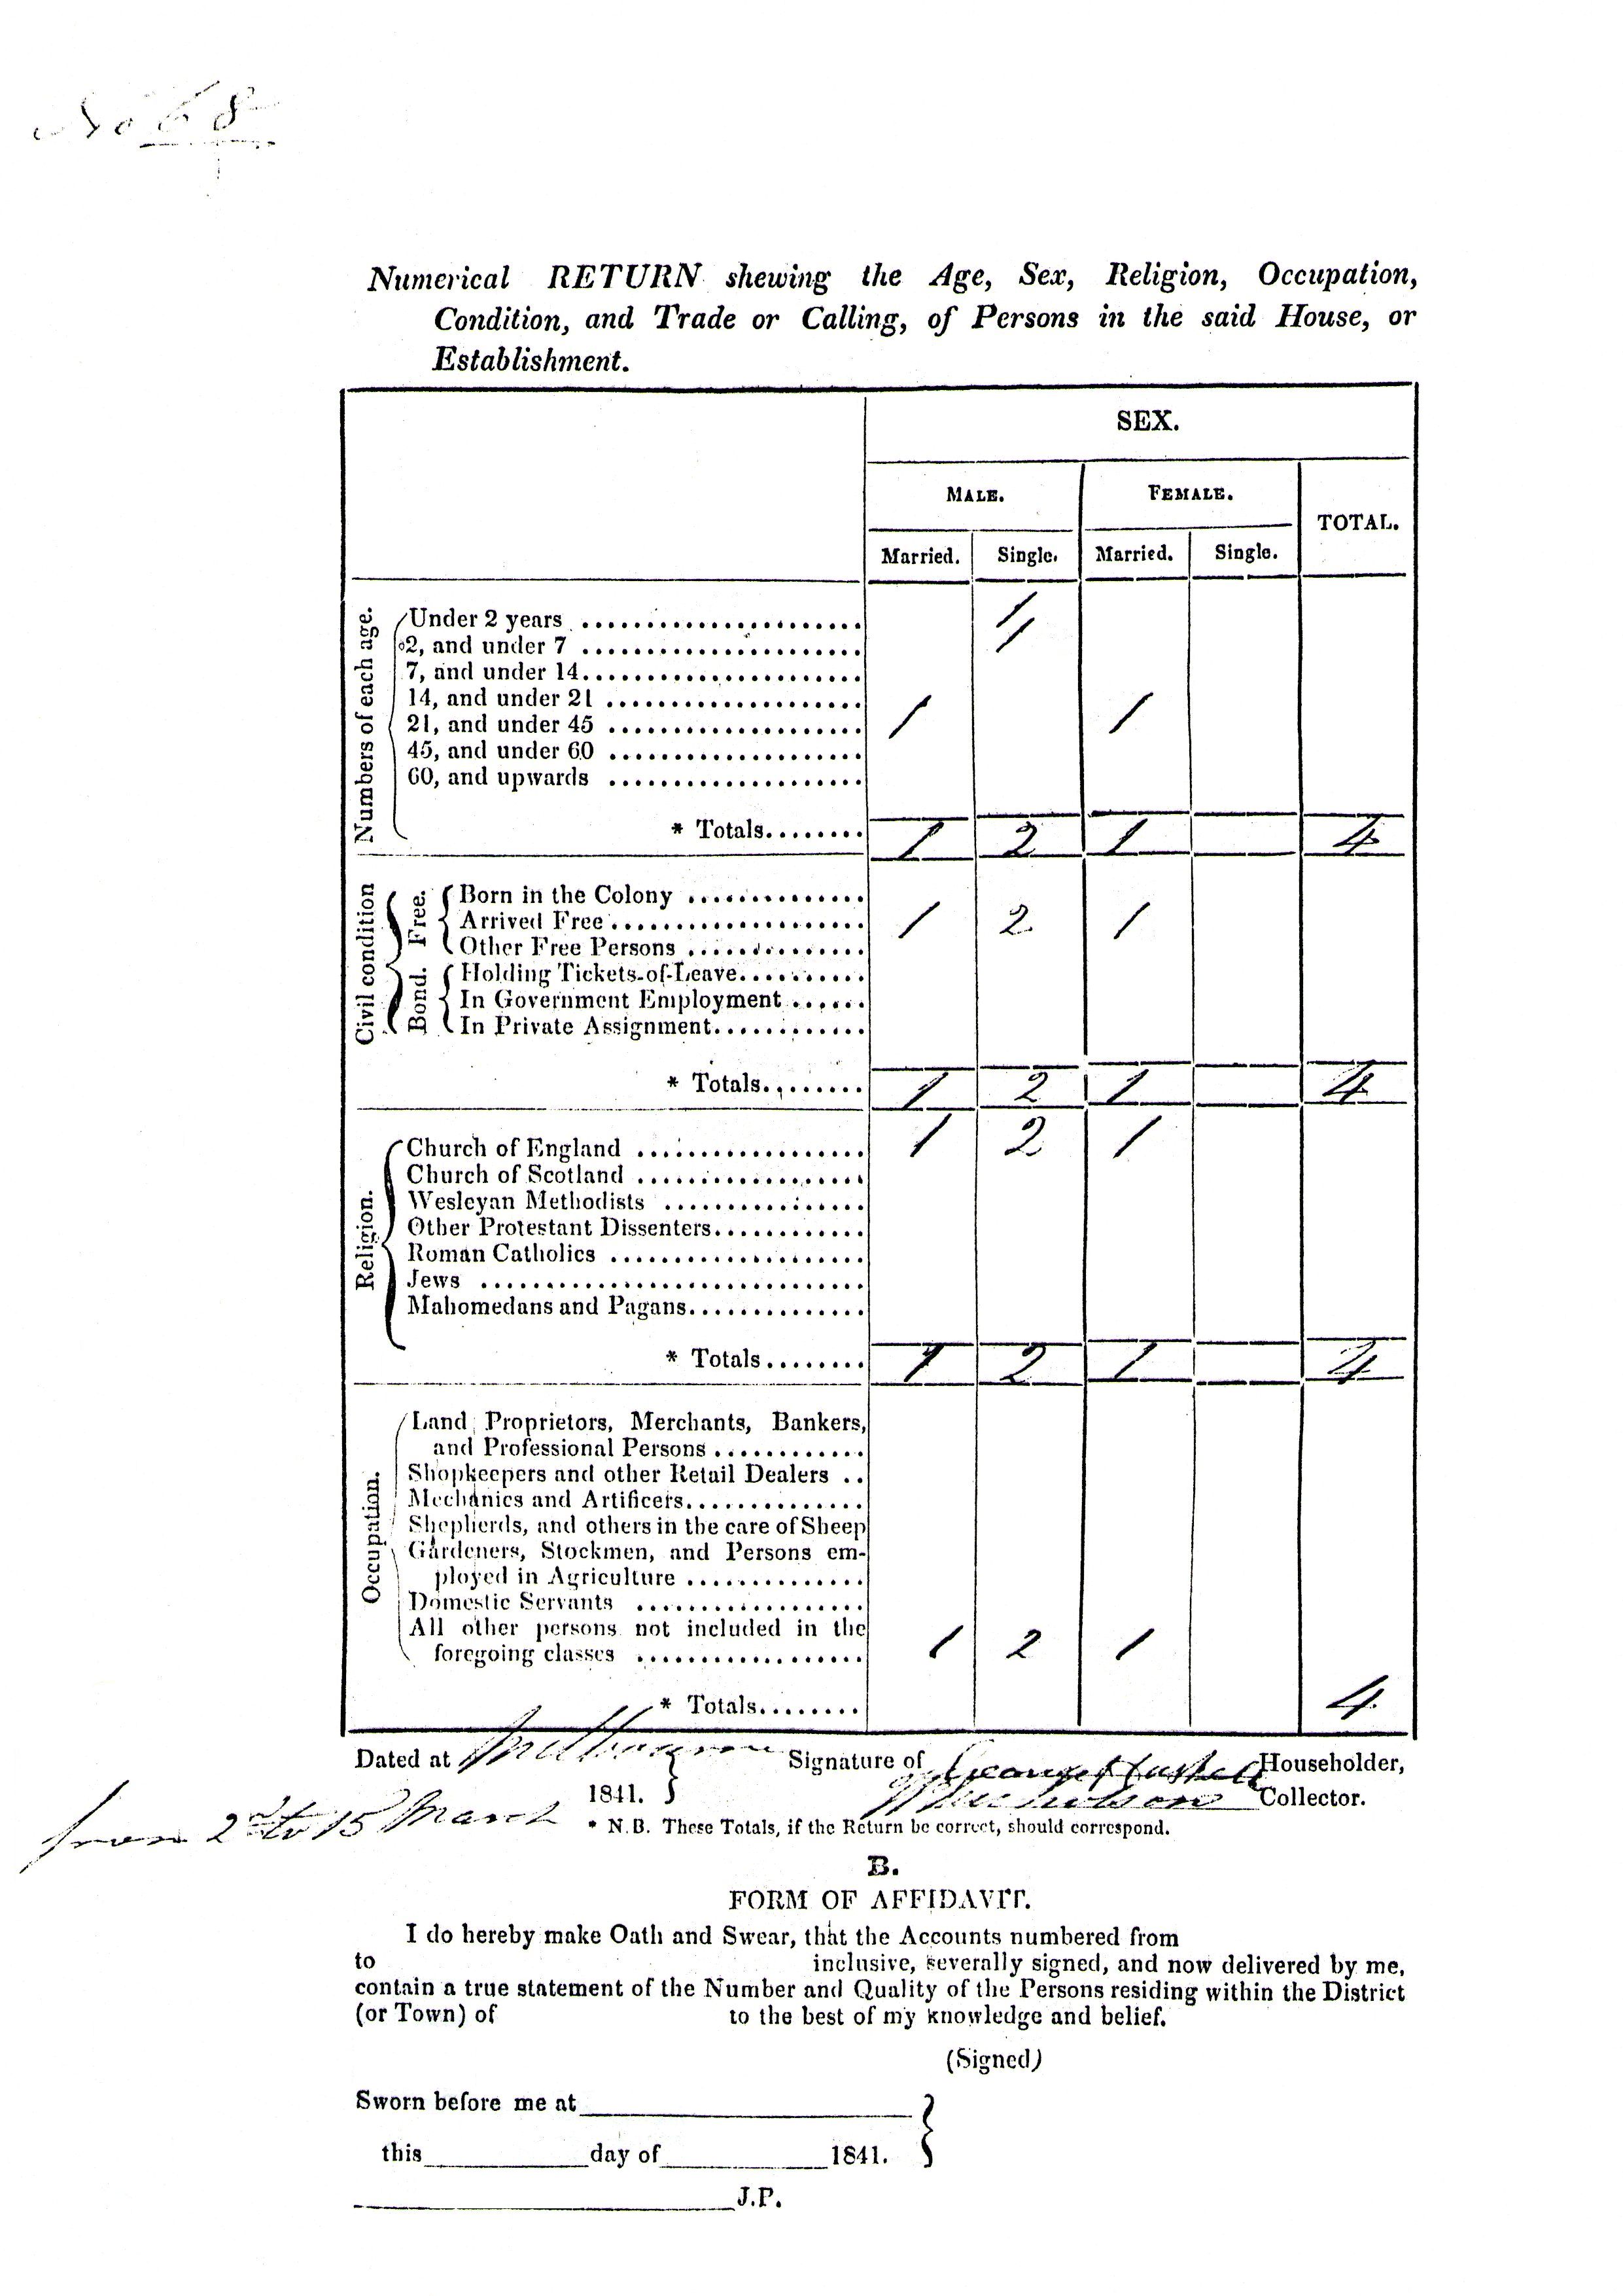 No 68
Numerical RETURN shewing the Age, Sex, Religion, Occupation,
Condition, and Trade or Calling, of Persons in the said House, or
Establishment.
SEX.
MALE. FEMALE. TOTAL.
Married. Single. Married. Single.
Numbers of each age.
Under 2 years ...................... 1
2, and under 7 ...................... 1
7, and under 14......................
14, and under 21 ....................
21, and under 45 .................... 1 1
45, and under 60 ....................
60, and upwards ....................
* Totals........ 1 2 1 4
Civil condition
Free.
Born in the Colony ..............
Arrived Free.................... 1 2 1
Other Free Persons ..............
Bond.
Holding Tickets-of-Leave..........
In Government Employment ......
In Private Assignment............
* Totals........ 1 2 1 4
Religion.
Church of England .................. 1 2 1
Church of Scotland ..................
Wesleyan Methodists ................
Other Protestant Dissenters............
Roman Catholics ....................
Jews ..............................
Mahomedans and Pagans..............
* Totals........ 1 2 1 4
Occupation.
Land Proprietors, Merchants, Bankers,
and Professional Persons ............
Shopkeepers and other Retail Dealers ..
Mechanics and Artificers..............
Shepherds, and others in the care of Sheep
Gardeners, Stockmen, and Persons em-
ployed in Agriculture ..............
Domestic Servants ..................
All other persons not included in the
foregoing classes .................. 1 2 1
* Totals........ 4
Dated at Melbourne Signature of George Householder,
1841. Nicholson Collector.
from 2nd to 15 March
* N.B. These Totals, if the Return be correct, should correspond.
B.
FORM OF AFFIDAVIT.
I do hereby make Oath and Swear, that the Accounts numbered from
to inclusive, severally signed, and now delivered by me,
contain a true statement of the Number and Quality of the Persons residing within the District
(or Town) of to the best of my knowledge and belief.
(Signed)
Sworn before me at
this day of 1841.
J.P.